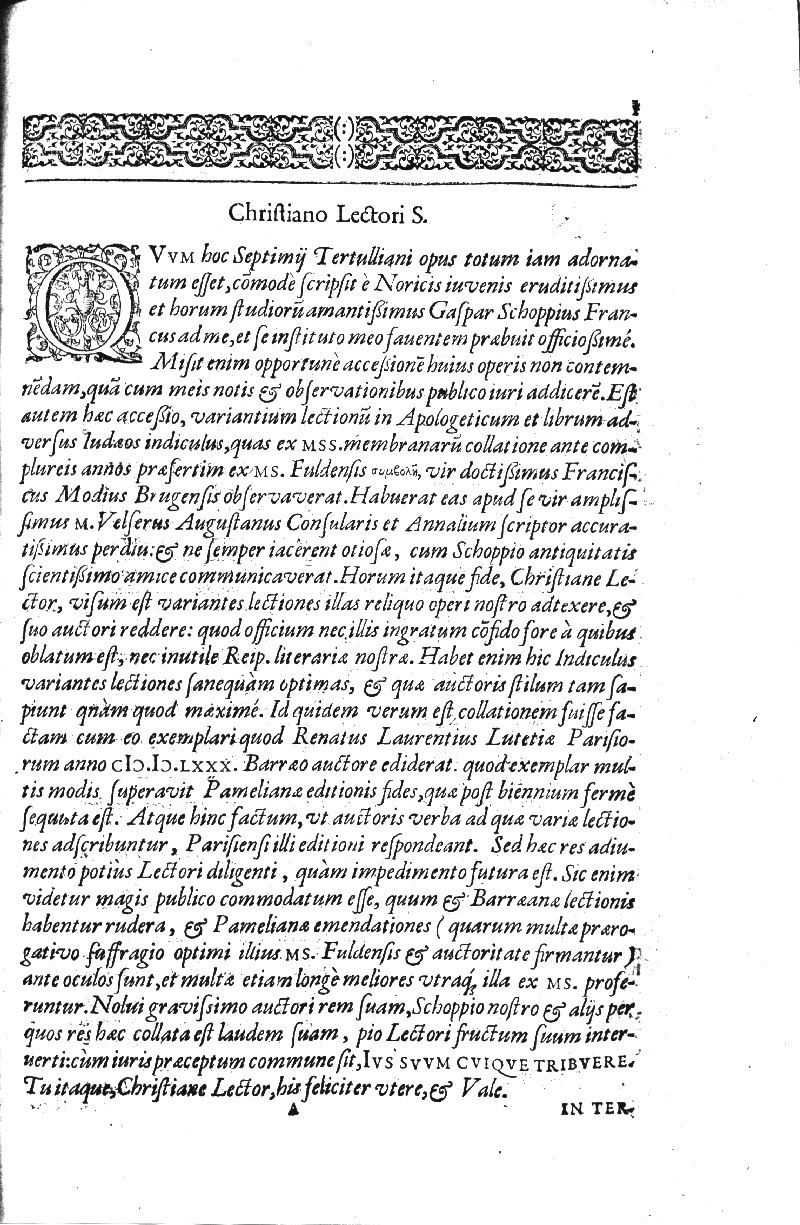 Chriſtiano Lectori S.
QVVM hoc Septimij Tertulliani opus totum iam adorna-
tum eſſet, cõmodè ſcripſit è Noricis iuvenis eruditißimus
et horum ſtudiorũ amantißimus Gaſpar Schoppius Fran-
cus ad me, et ſe inſtituto meo faventem præbuit officioſſimé.
Miſit enim opportunè acceßionẽ huius operis non contem-
nẽdam, quã cum meis notis & obſervationibus publico iuri addicerẽ. Eſt
autem hæc acceßio, variantium lectionũ in Apologeticum et librum ad-
verſus Iudæos indiculus, quas ex MSS. membranarũ collatione ante com-
plureis annos præſertim ex MS. Fuldenſis συμβολῇ, vir doctißimus Franciſ-
cus Modius Brugenſis obſervaverat. Habuerat eas apud ſe vir ampliſ-
ſimus M. Velſerus Auguſtanus Conſularis et Annalium ſcriptor accura-
tißimus perdiu: & ne ſemper iacerent otioſæ, cum Schoppio antiquitatis
ſcientißimo amice communicaverat. Horum itaque fide, Chriſtiane Le-
ctor, viſum eſt variantes lectiones illas reliquo operi noſtro adtexere, &
ſuo auctori reddere: quod officium nec illis ingratum cõfido fore à quibus
oblatum eſt, nec inutile Reip. literariæ noſtræ. Habet enim hic Indiculus
variantes lectiones ſanequàm optimas, & quæ auctoris ſtilum tam ſa-
piunt quàm quod maximé. Id quidem verum eſt collationem fuiſſe fa-
ctam cum eo exemplari quod Renatus Laurentius Lutetiæ Pariſio-
rum anno CIↃ.IↃ.LXXX. Barræo auctore ediderat. quod exemplar mul-
tis modis ſuperavit Pamelianæ editionis fides, quæ poſt biennium fermè
ſequuta eſt. Atque hinc factum, vt auctoris verba ad quæ variæ lectio-
nes adſcribuntur, Pariſienſi illi editioni reſpondeant. Sed hæc res adiu-
mento potius Lectori diligenti, quàm impedimento futura eſt. Sic enim
videtur magis publico commodatum eſſe, quum & Barræanæ lectionis
habentur rudera, & Pamelianæ emendationes ( quarum multæ præro-
gativo ſuffragio optimi illius MS. Fuldenſis & auctoritate firmantur )
ante oculos ſunt, et multæ etiam longè meliores vtraq; illa ex MS. profe-
runtur. Nolui graviſsimo auctori rem ſuam, Schoppio noſtro & alijs per
quos res hæc collata eſt laudem ſuam, pio Lectori fructum ſuum inter-
verti: cùm iuris præceptum commune ſit, IVS SVVM CVIQVE TRIBVERE.
Tu itaque, Chriſtiane Lector, his feliciter vtere, & Vale.
A IN TER-